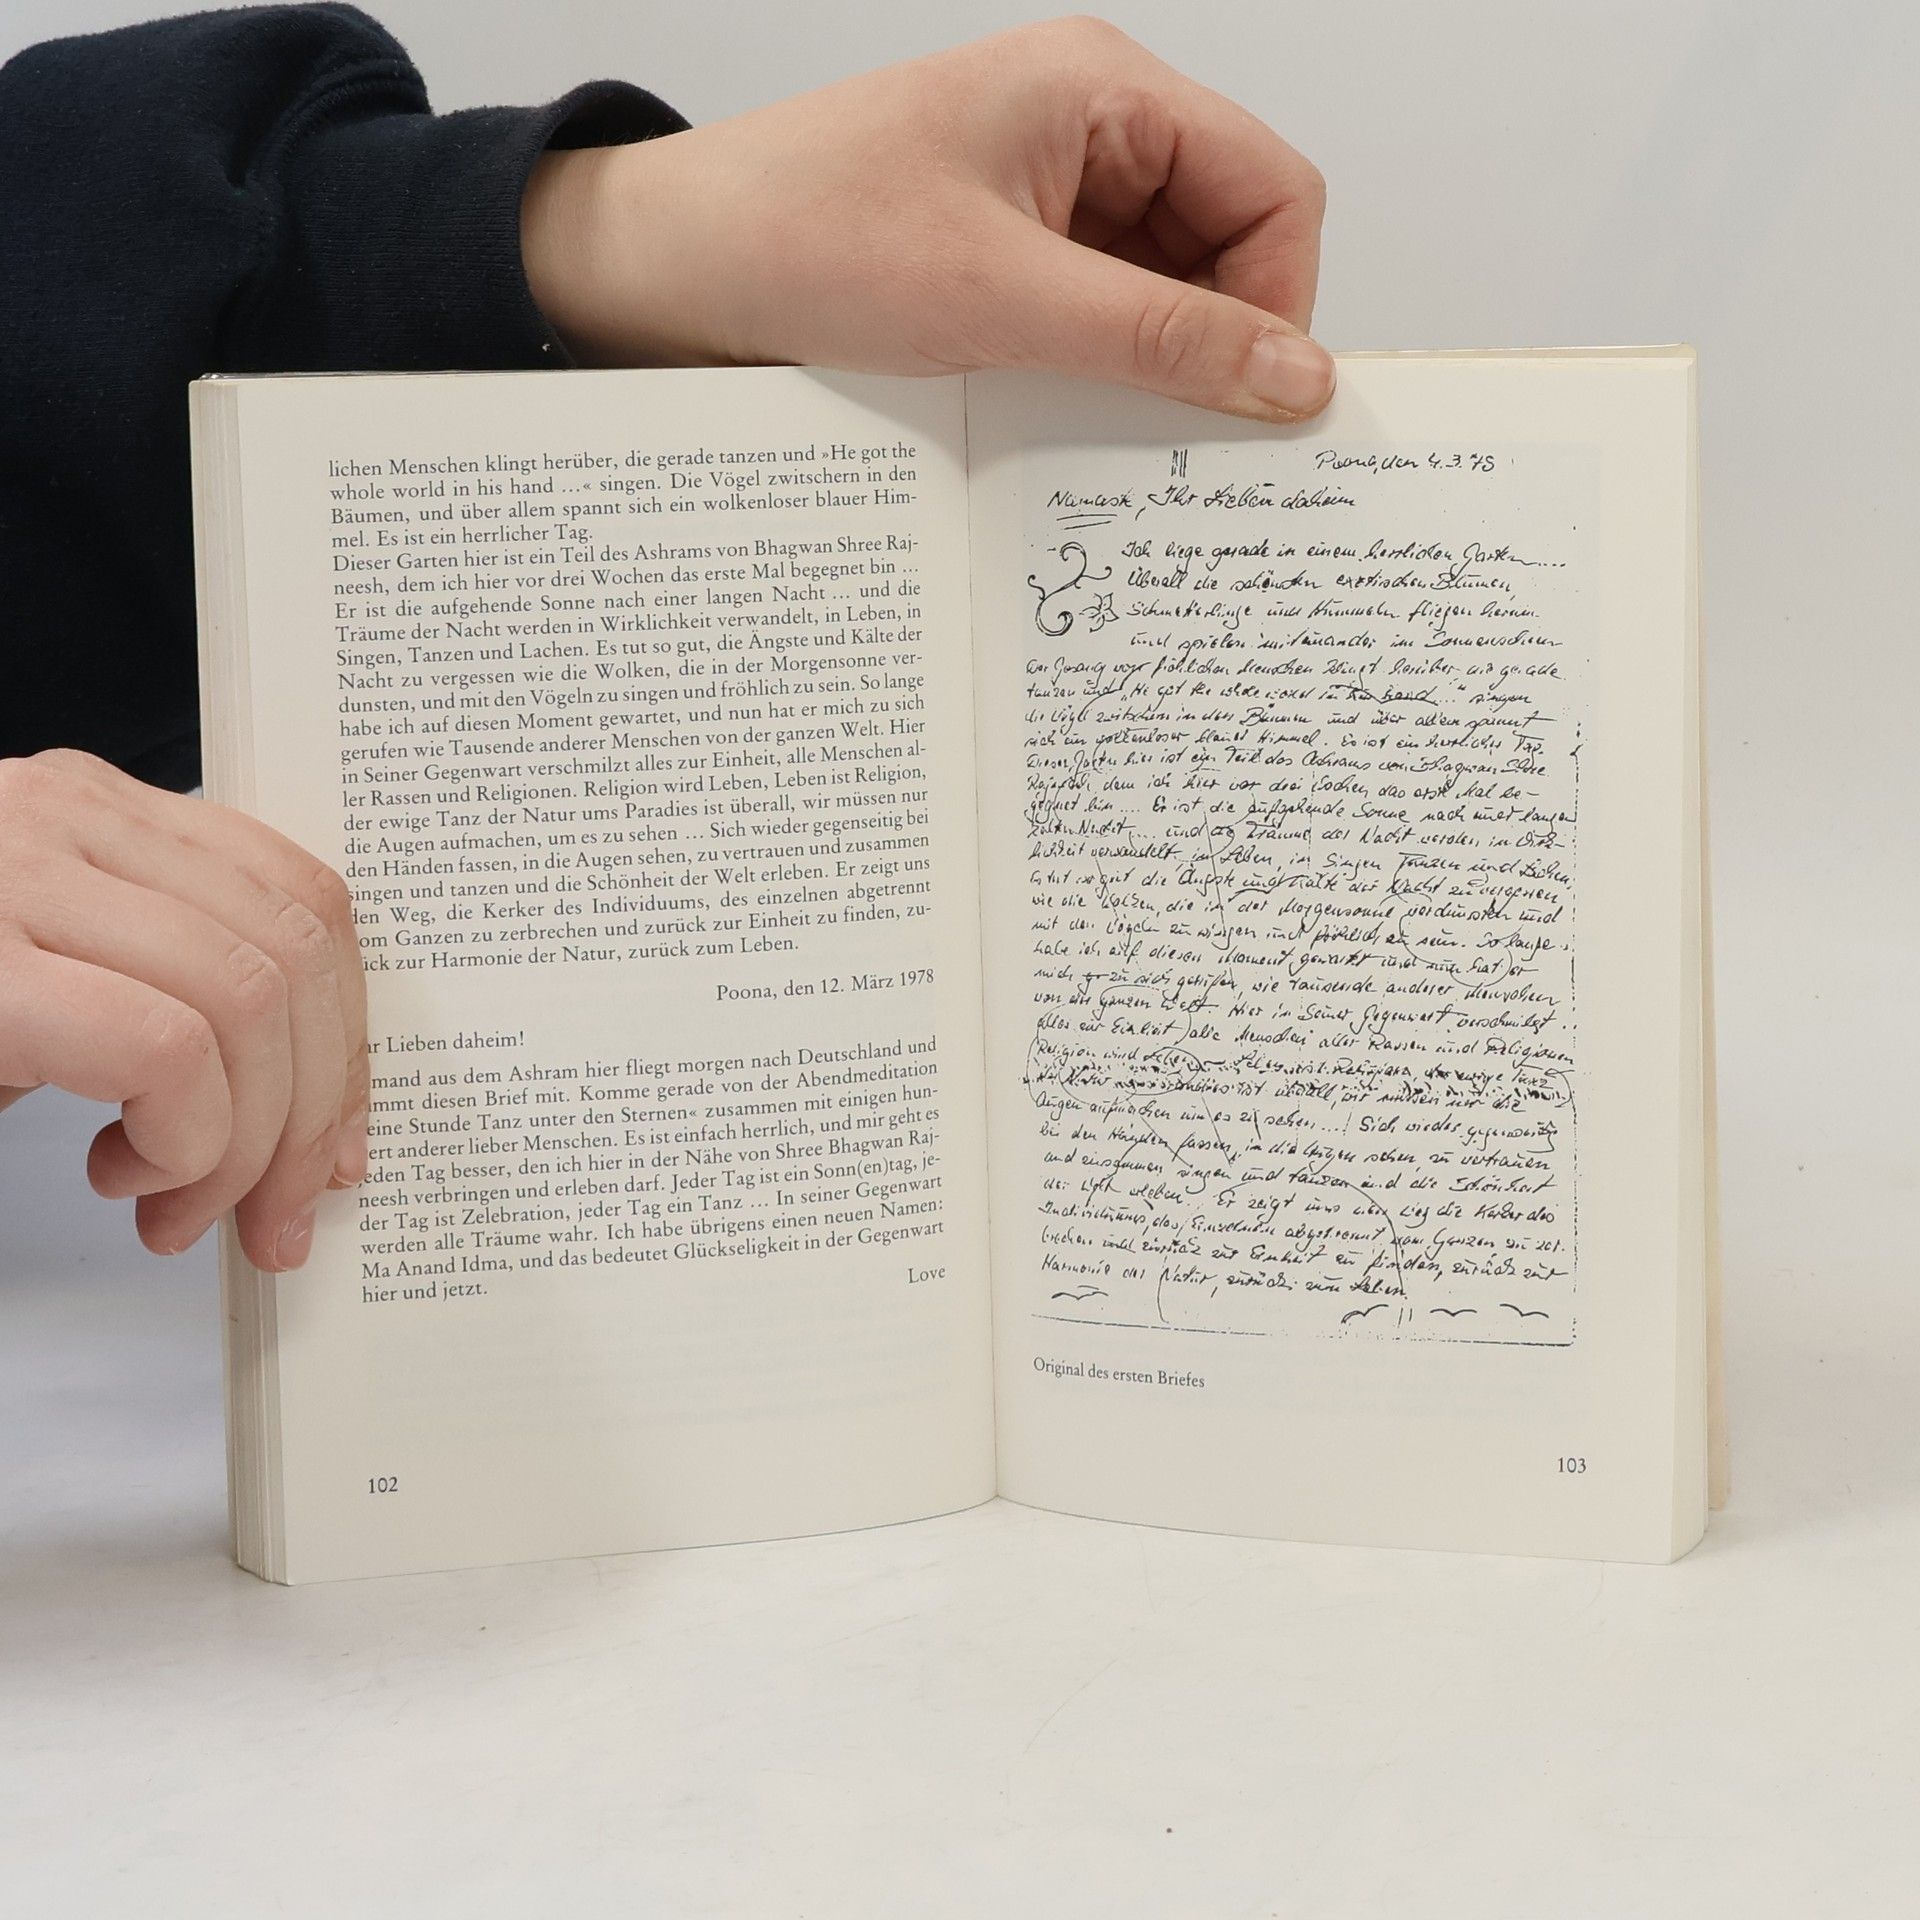 lichen Menschen klingt herüber, die gerade tanzen und »He got the
whole world in his hand ...« singen. Die Vögel zwitschern in den
Bäumen, und über allem spannt sich ein wolkenloser blauer Him-
mel. Es ist ein herrlicher Tag.
Dieser Garten hier ist ein Teil des Ashrams von Bhagwan Shree Raj-
neesh, dem ich hier vor drei Wochen das erste Mal begegnet bin ...
Er ist die aufgehende Sonne nach einer langen Nacht ... und die
Träume der Nacht werden in Wirklichkeit verwandelt, in Leben, in
Singen, Tanzen und Lachen. Es tut so gut, die Ängste und Kälte der
Nacht zu vergessen wie die Wolken, die in der Morgensonne ver-
dunsten, und mit den Vögeln zu singen und fröhlich zu sein. So lange
habe ich auf diesen Moment gewartet, und nun hat er mich zu sich
gerufen wie Tausende anderer Menschen von der ganzen Welt. Hier
in Seiner Gegenwart verschmilzt alles zur Einheit, alle Menschen al-
ler Rassen und Religionen. Religion wird Leben, Leben ist Religion,
der ewige Tanz der Natur ums Paradies ist überall, wir müssen nur
die Augen aufmachen, um es zu sehen ... Sich wieder gegenseitig bei
den Händen fassen, in die Augen sehen, zu vertrauen und zusammen
singen und tanzen und die Schönheit der Welt erleben. Er zeigt uns
den Weg, die Kerker des Individuums, des einzelnen abgetrennt
om Ganzen zu zerbrechen und zurück zur Einheit zu finden, zu-
ück zur Harmonie der Natur, zurück zum Leben.
Poona, den 12. März 1978
hr Lieben daheim!
mand aus dem Ashram hier fliegt morgen nach Deutschland und
immt diesen Brief mit. Komme gerade von der Abendmeditation
eine Stunde Tanz unter den Sternen« zusammen mit einigen hun-
ert anderer lieber Menschen. Es ist einfach herrlich, und mir geht es
jeden Tag besser, den ich hier in der Nähe von Shree Bhagwan Raj-
neesh verbringen und erleben darf. Jeder Tag ist ein Sonn(en)tag, je-
der Tag ist Zelebration, jeder Tag ein Tanz ... In seiner Gegenwart
werden alle Träume wahr. Ich habe übrigens einen neuen Namen:
Ma Anand Idma, und das bedeutet Glückseligkeit in der Gegenwart
hier und jetzt.
Love
102
Poona, den 4.3.78
Namaste, Ihr Lieben daheim
Ich liege gerade in einem herrlichen Garten....
Überall die schönsten exotischen Blumen,
Schmetterlinge und Hummeln fliegen herum
und spielen miteinander im Sonnenschein
Der Gesang von fröhlichen Menschen klingt herüber, die gerade
tanzen und "He got the whole world in his hand..." singen
die Vögel zwitschern in den Bäumen und über allem spannt
sich ein wolkenloser blauer Himmel. Es ist ein herrlicher Tag.
Dieser Garten hier ist ein Teil des Ashrams von Bhagwan Shree
Rajneesh, dem ich hier vor drei Wochen das erste Mal be-
gegnet bin.... Er ist die aufgehende Sonne nach einer langen
kalten Nacht.... und die Träume der Nacht werden in Wirk-
lichkeit verwandelt in Leben, in Singen Tanzen und Lachen,
Es tut so gut die Ängste und Kälte der Nacht zu vergessen
wie die Wolken, die in der Morgensonne verdunsten und
mit den Vögeln zu singen und fröhlich zu sein. So lange
habe ich auf diesen Moment gewartet und nun hat er
mich zu sich gerufen, wie tausende anderer Menschen
von der ganzen Welt. Hier in Seiner Gegenwart verschmilzt
alles zur Einheit, alle Menschen aller Rassen und Religionen
Religion wird Leben, Leben ist Religion, der ewige Tanz
der Natur ist überall, wir müssen nur die
Augen aufmachen um es zu sehen...! Sich wieder gegenseitig
bei den Händen fassen, in die Augen sehen, zu vertrauen
und zusammen singen und tanzen und die Schönheit
der Welt erleben. Er zeigt uns den Weg die Kerker des
Individuums, des Einzelnen abgetrennt vom Ganzen zu zer-
brechen und zurück zur Einheit zu finden, zurück zur
Harmonie der Natur, zurück zum Leben.
Original des ersten Briefes
103